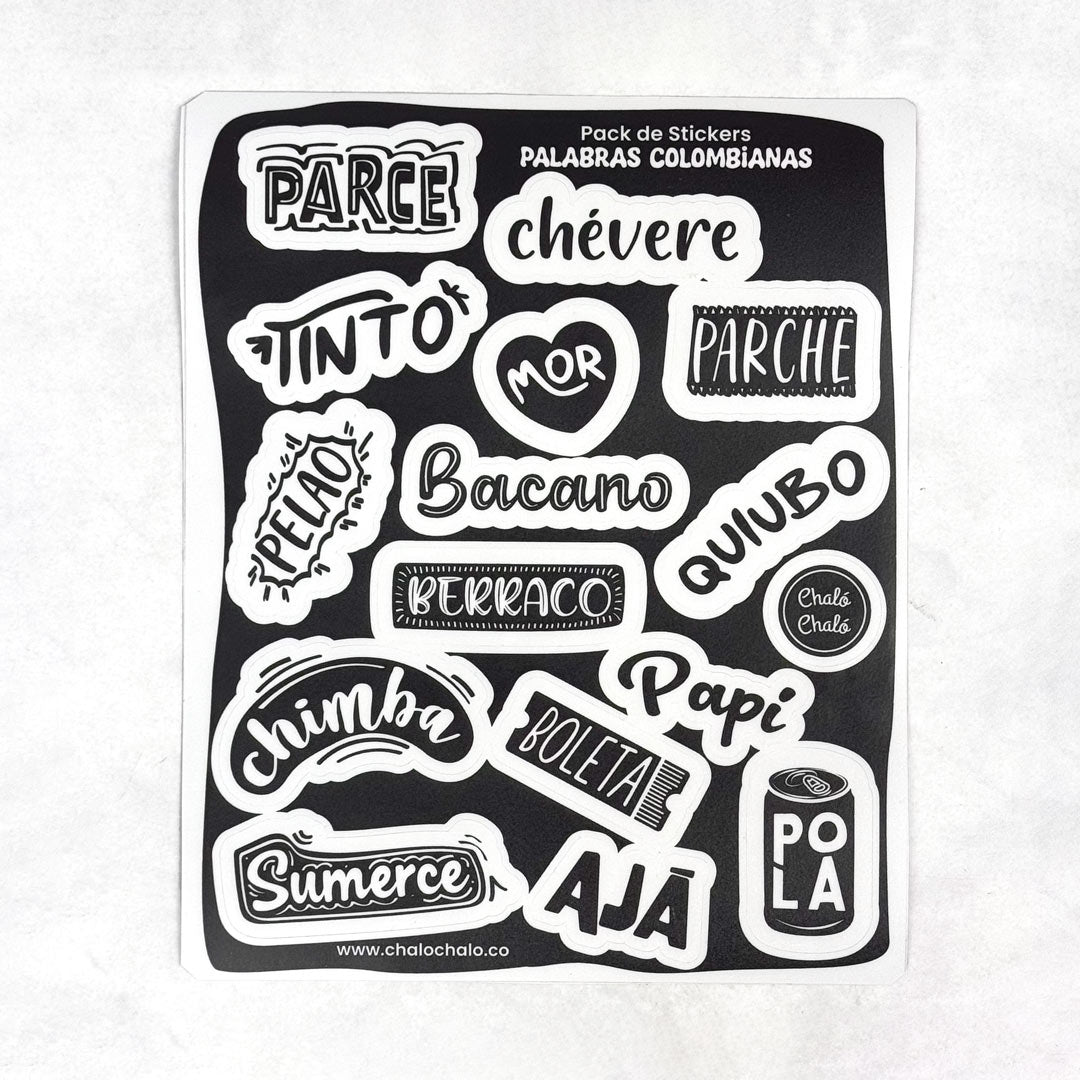 Pack de Stickers
PALABRAS COLOMBIANAS
PARCE
chévere
TINTO
MOR
PARCHE
PELAO
Bacano
QUIUBO
BERRACO
Chaló
Chaló
chimba
Papi
BOLETA
PO
LA
Sumerce
AJÁ
www.chalochalo.co